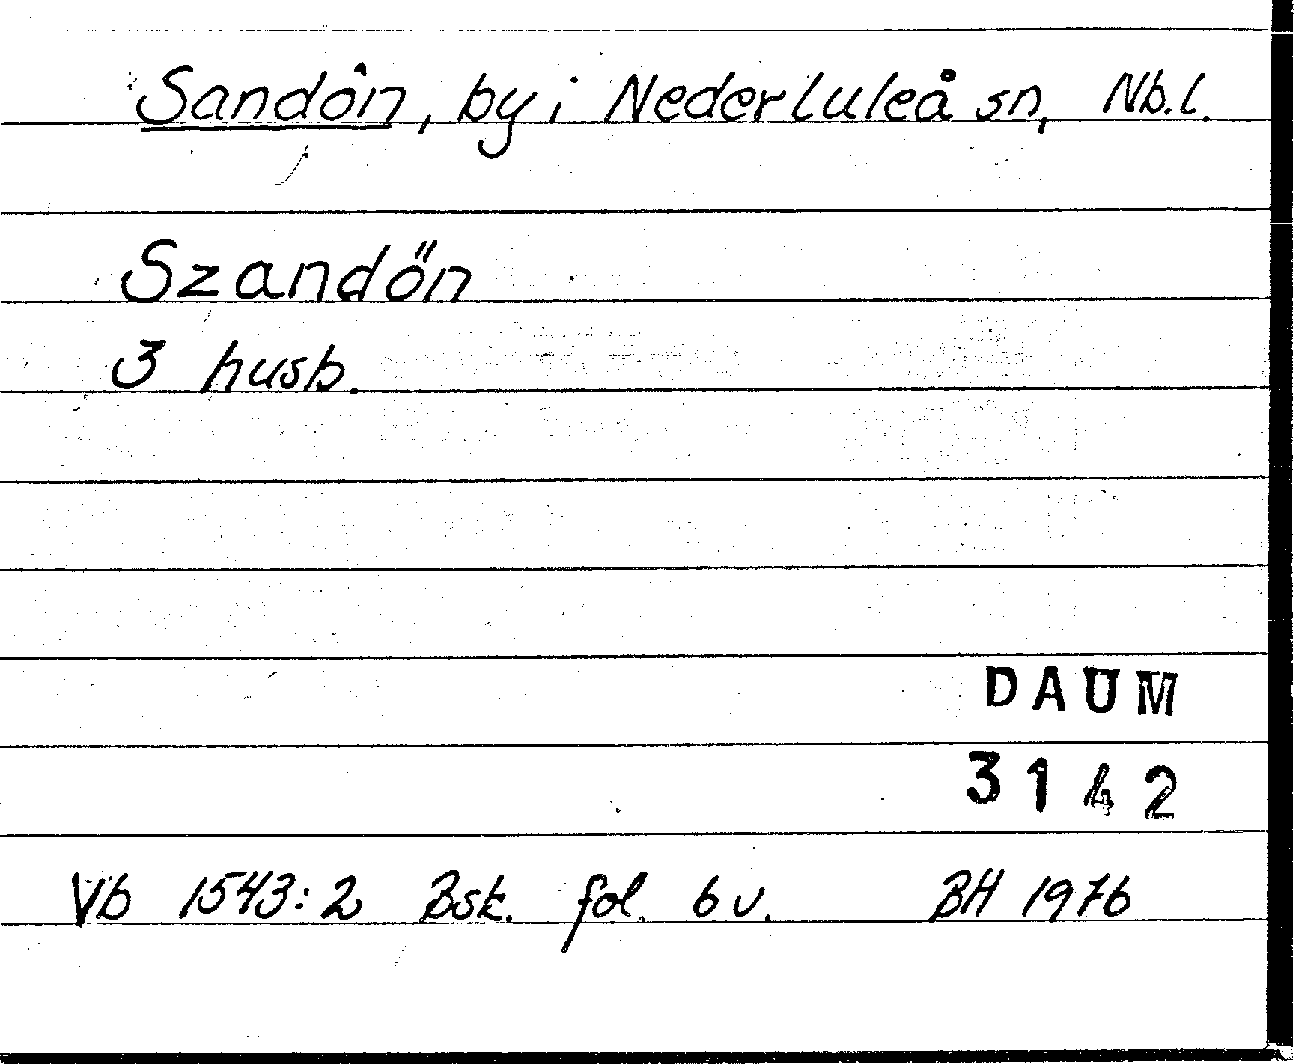 Sandön, by i Nederluleå sn, Nb.l.
Szandön
3 husb.
DAUM
3142
Vb 1543:2 Bsk. fol. 6 v. BH 1976